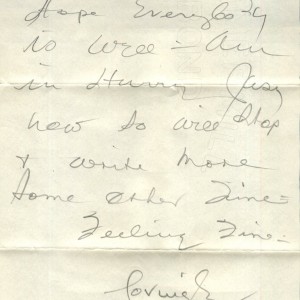 Hope Everybody
is well = Am
in Hurry Just
now so will stop
& write more
some other Time =
Feeling Fine =
Lovingly